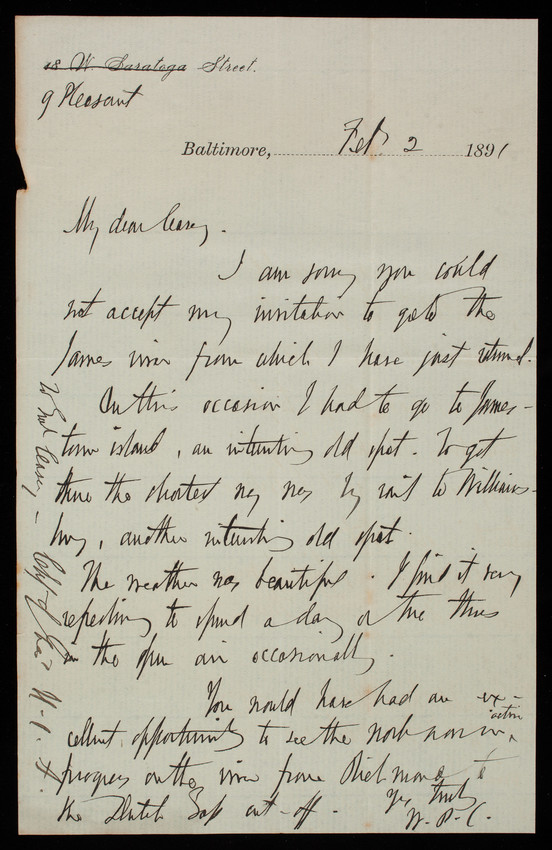 18 W. Saratoga Street.
9 Pleasant
Baltimore, Feb. 2 1891
My dear Casey.
I am sorry you could
not accept my invitation to go to the
James river from which I have just returned.
On this occasion I had to go to James-
town island, an interesting old spot. To get
there the shortest way was by rail to Williams-
burg, another interesting old spot.
The weather was beautiful. I find it very
refreshing to spend a day or two thus
in the open air occasionally.
You would have had an ex-
cellent opportunity to see the work now in
active
progress on the river from Richmond to
the Dutch Gap cut-off.
Yrs truly
W. P. C.
To Genl Casey - Chf of